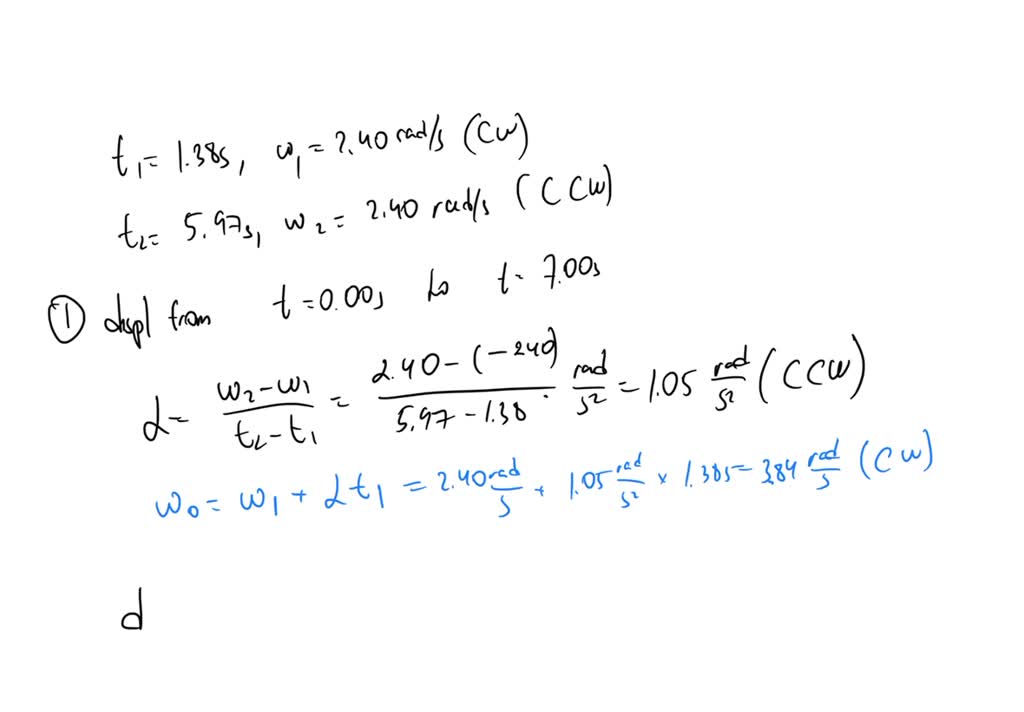 t₁= 1.38s, ω₁ = 2.40 rad/s (CW)
t₂= 5.97s, ω₂ = 2.40 rad/s (CCW)
① displ from t = 0.00s to t = 7.00s
α = (ω₂-ω₁)/(t₂-t₁) = (2.40-(-2.40))/(5.97-1.38) · rad/s² = 1.05 rad/s² (CCW)
ω₀ = ω₁ + αt₁ = 2.40 rad/s + 1.05 rad/s² × 1.38s = 3.84 rad/s (CW)
d